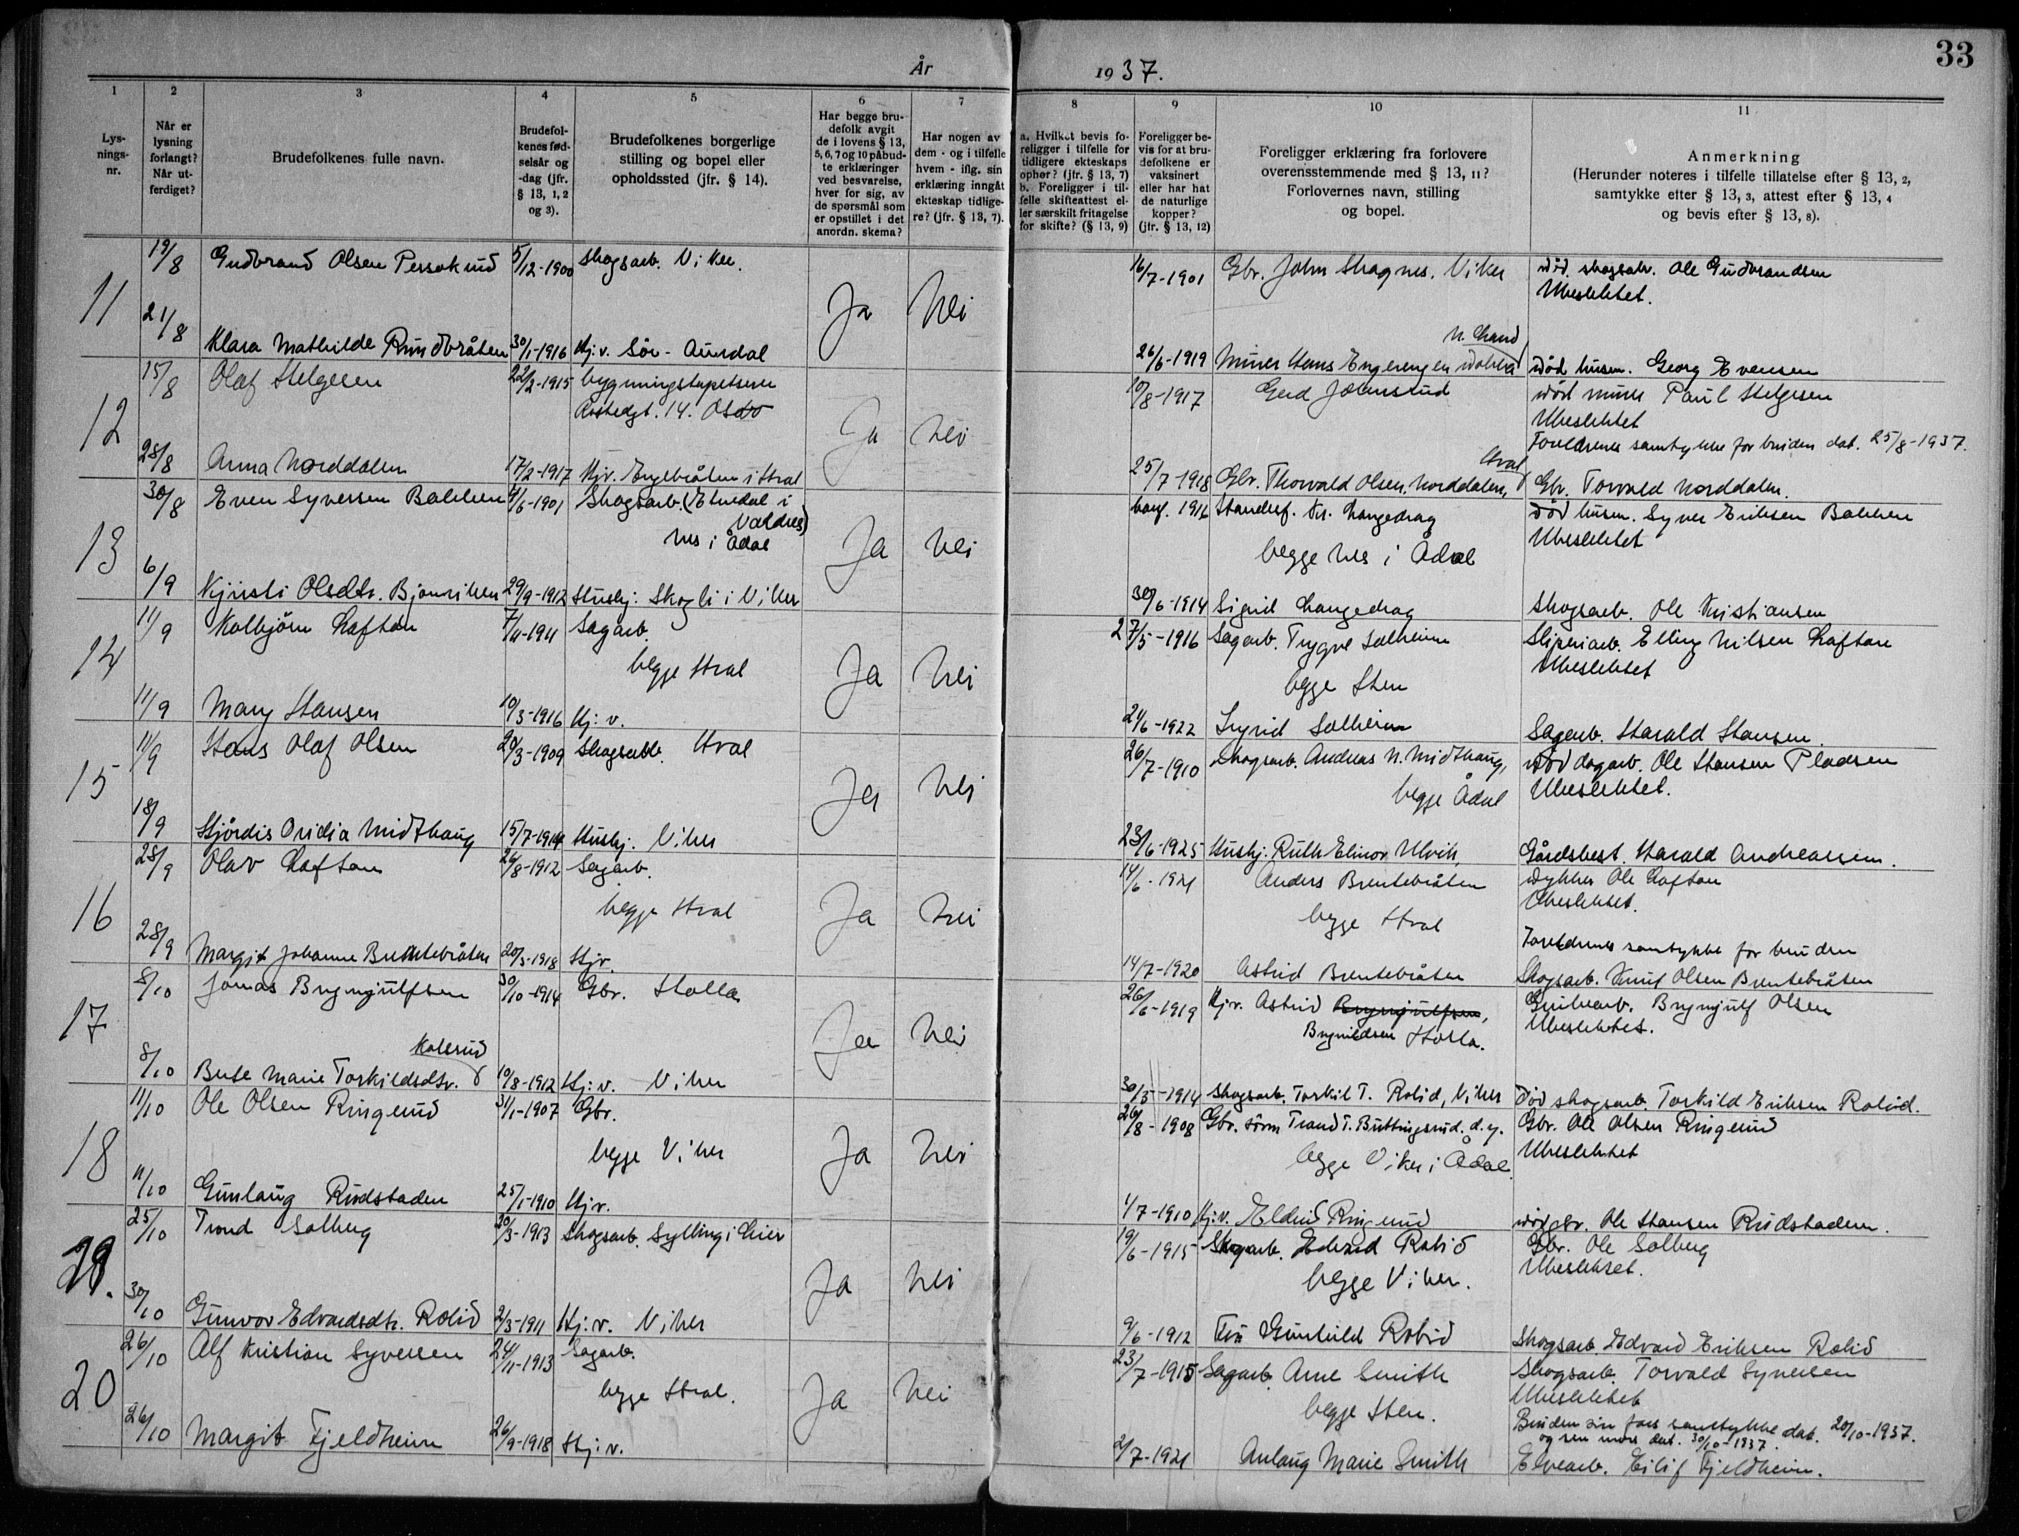 33
År 1937.
1 2 3 4 5 6 7 8 9 10 11
Lys-
nings-
nr.
Når er
lysning
forlangt?
Når ut-
ferdiget?
Brudefolkenes fulle navn.
Brudefol-
kenes fød-
selsår og
-dag (jfr.
§ 13, 1, 2
og 3).
Brudefolkenes borgerlige
stilling og bopel eller
opholdssted (jfr. § 14).
Har begge bru-
defolk avgit
de i lovens § 13,
5, 6, 7 og 10 påbud-
te erklæringer
ved besvarelse,
hver for sig, av
de spørsmål som
er opstillet i det
anordn. skema?
Har nogen av
dem - og i tilfelle
hvem - iflg. sin
erklæring inngåt
ekteskap tidlige-
re? (jfr. § 13, 7).
a. Hvilket bevis fo-
religger i tilfelle for
tidligere ekteskaps
ophør? (jfr. § 13, 7)
b. Foreligger i til-
felle skifteattest el-
ler særskilt fritagelse
for skifte? (§ 13, 9)
Foreligger be-
vis for at bru-
defolkene er
vaksinert
eller har hat
de naturlige
kopper?
(jfr. § 13, 12)
Foreligger erklæring fra forlovere
overensstemmende med § 13, 11?
Forlovernes navn, stilling
og bopel.
Anmerkning
(Herunder noteres i tilfelle tillatelse efter § 13, 2,
samtykke efter § 13, 3, attest efter § 13, 4
og bevis efter § 13, 8).
19/8 Gudbrand Olsen 5/12-1900 Skogsarb. Viker. 16/7-1901 Gbr. John Skagnes, Viker død skogsarb. Ole Gudbrandsen
Ubeslektet.
11 Ja Nei
21/8 Klara Mathilde Rundbråten 30/1-1916 Hj.v. Sør-Aurdal 26/6-1919 Murer Hans Engerengen død husm. Georg Evensen
15/8 Olaf Helgesen 22/2-1915 bygningstapetserer 10/8-1917 Gerd død murer Paul Helgesen
14. Oslo Ubeslektet
12 Ja Nei Foreldrenes samtykke for bruden dat. 25/8-1937.
28/8 Anna Norddalen 17/2-1917 Hjv. Engebråten i Hval 25/7-1918 Gbr. Thorvald Olsen Norddalen, Hval Gbr. Torvald Norddalen.
30/8 Even Syversen Bakken 4/6-1901 Skogsarb. (Etnedal i
Valdres)
Nes i Ådal 1916 Handelsf. Kr. Langedrag død husm. Syver Eriksen Bakken
begge Nes i Ådal Ubeslektet
13 Ja Nei
6/9 Kjirsti Olsdtr. 29/9-1912 Hushj. Skogli i Viker 30/6-1914 Sigrid Langedrag Skogsarb. Ole Kristiansen
11/9 Kolbjörn Laftan 7/4-1911 Sagarb. 27/5-1916 Sagarb. Trygve Solheim Sliperiarb. Elling Nilsen Laftan
begge Hval begge Hen Ubeslektet
14 Ja Nei
11/9 Mary Hansen 10/3-1916 Hj.v. 21/6-1922 Ingrid Solheim Sagarb. Harald Hansen.
11/9 Hans Olaf Olsen 20/3-1909 Skogsarb. Hval 26/7-1910 Skogsarb. Andreas N. Midthaug, død dagarb. Ole Hansen Pladsen
begge Ådal Ubeslektet.
15 Ja Nei
18/9 Hjördis Midthaug 15/7-1914 Hushj. Viker 23/6-1925 Hushj. Ruth Elinor Ulvik, Gårdsbest. Harald Andreassen.
28/9 Olav Laftan 26/8-1912 Sagarb. 14/6-1921 Anders Brentebråten Dykker Ole Laftan
begge Hval begge Hval Ubeslektet.
16 Ja Nei Foreldrenes samtykke for bruden
28/9 Margit Johanne Brentebråten 20/3-1918 Hjv. 14/7-1920 Astrid Brentebråten Skogsarb. Knut Olsen Brentebråten
8/10 Jonas Brynjulfsen 30/10-1914 Gbr. Holla 26/6-1919 Hjv. Astrid Brynjulfsen, Brynjulf Olsen
Holla. Ubeslektet.
17 Ja Nei
8/10 Berte Marie Torkildsdtr. Kolsrud 10/8-1912 Hj.v. Viker 30/5-1914 Skogsarb. Torkil T. Rolid, Viker død skogsarb. Torkild Eriksen Rolid.
11/10 Ole Olsen Ringerud 31/1-1907 Gbr. 26/8-1908 Gbr. sönn Trand T. Buttingsrud d.y. Gbr. Ole Olsen Ringerud
begge Viker begge Viker i Ådal Ubeslektet
18 Ja Nei
11/10 Gunlaug Rudstaden 25/1-1910 Hjv. 1/7-1910 Hj.v. Eldrid Ringerud død gbr. Ole Hansen Rudstaden.
25/10 Trond Solberg 20/3-1913 Skogsarb. Sylling i Lier 19/6-1915 Skogarb. Edvard Rolid Gbr. Ole Solberg
begge Viker. Ubeslektet.
19. Ja Nei
30/10 Gunvor Edvardsdtr. Rolid 2/3-1911 Hj.v. Viker 9/6-1912 Gunhild Rolid Skogsarb. Edvard Eriksen Rolid
26/10 Alf Kristian Syversen 24/11-1913 Sagarb. 23/7-1915 Sagarb. Arne Smith Skogsarb. Torvald Syversen
begge Hval. begge Hen. Ubeslektet
20 Ja Nei Bruden sin fars samtykke dat. 20/10-1937.
og sin mors dat. 30/10-1937.
26/10 Margit Fjeldheim 26/9-1918 Hj.v. 2/7-1921 Anlaug Marie Smith Elvearb. Eilif Fjeldheim.